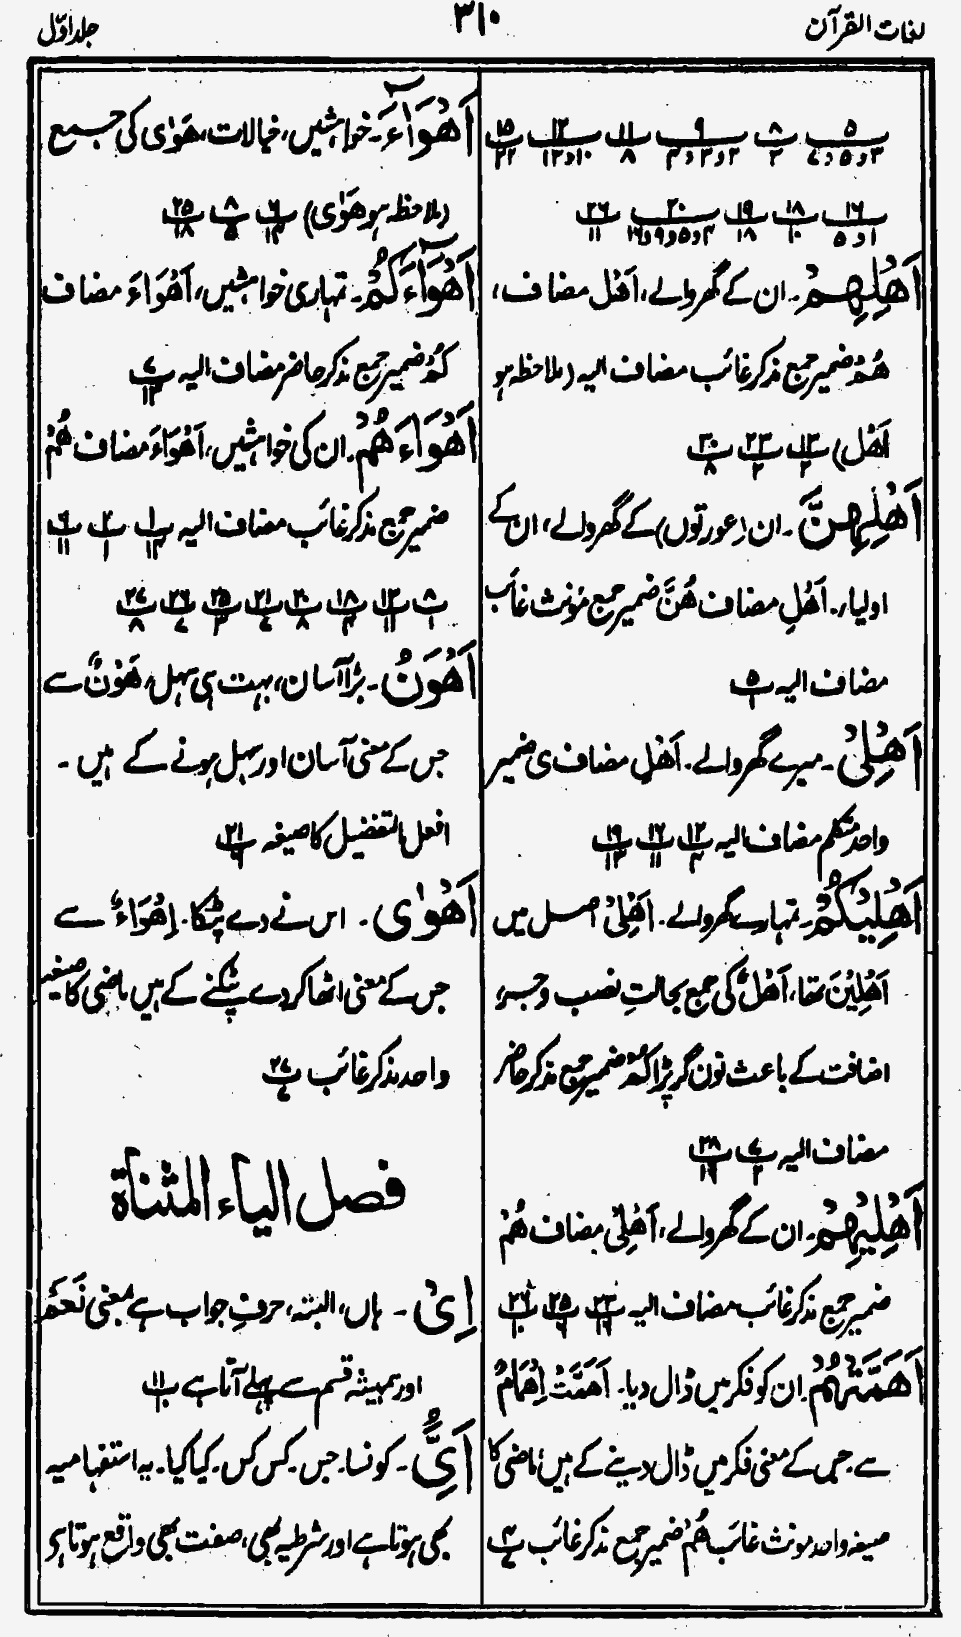 لغات القرآن
۳۱۰
جلد اوّل
۵ ۸ ۹ ۱۱ ۱۲ ۱۵
۳ و ۵ و ۷ ۳ ۲ و ۳ و ۴ ۸ ۱۰ و ۱۲ ۲۲
۱۶ ۱۸ ۱۹ ۲۰ ۲۶
۱ و ۵ ۱۰ ۱۸ ۴ و ۵ و ۹ و ۱۶ ۱۱
اَهْلِهِمْ۔ ان کے گھر والے، اَهْل مضاف،
هُمْ ضمیر جمع مذکر غائب مضاف الیہ (ملاحظہ ہو
اَهْل) ۱۳/۲ ۲۳/۲ ۳۰/۸
اَهْلِهِنَّ۔ ان (عورتوں) کے گھر والے، ان کے
اولیاء۔ اَهْلِ مضاف هُنَّ ضمیر جمع مؤنث غائب
مضاف الیہ ۵/۱
اَهْلِیْ۔ میرے گھر والے۔ اَهْلِ مضاف ی ضمیر
واحد متکلم مضاف الیہ ۱۲/۴ ۱۶/۱۱ ۱۹/۱۳
اَهْلِیْكُمْ۔ تمہارے گھر والے۔ اَهْلِیْ اصل میں
اَهْلِیْنَ تھا، اَهْلٌ کی جمع بحالتِ نصب و جر،
اضافت کے باعث نون گر پڑا كُمْ ضمیر جمع مذکر حاضر
مضاف الیہ ۷/۲ ۲۸/۱۹
اَهْلِیْهِمْ۔ ان کے گھر والے، اَهْلِیْ مضاف هُمْ
ضمیر جمع مذکر غائب مضاف الیہ ۲۳/۱۶ ۲۵/۶ ۲۶/۱۰
اَهَمَّتْهُمْ۔ ان کو فکر میں ڈال دیا۔ اَهَمَّتْ اِهْمَامٌ
سے۔ جس کے معنی فکر میں ڈال دینے کے ہیں، ماضی کا
صیغہ واحد مونث غائب هُمْ ضمیر جمع مذکر غائب ۴/۷
اَهْوَآءَ۔ خواہشیں، خیالات، هَوٰی کی جمع
(ملاحظہ ہو هَوٰی) ۶/۱۴ ۸/۵ ۲۵/۱۸
اَهْوَآءَكُمْ۔ تمہاری خواہشیں، اَهْوَاءَ مضاف
كُمْ ضمیر جمع مذکر حاضر مضاف الیہ ۷/۱۳
اَهْوَاءَهُمْ۔ ان کی خواہشیں، اَهْوَاءَ مضاف هُمْ
ضمیر جمع مذکر غائب مضاف الیہ ۱/۱۴ ۲/۱ ۶/۱۱
۸/۱ ۱۳/۱۲ ۱۸/۴ ۲۰/۸ ۲۱/۷ ۲۵/۳ ۲۶/۷ ۲۷/۸
اَهْوَنُ۔ بڑا آسان، بہت ہی سہل، هَوْنٌ سے
جس کے معنی آسان اور سہل ہونے کے ہیں۔
افعل التفضیل کا صیغہ ۲۱/۶
اَهْوٰی۔ اس نے دے پٹکا۔ اِهْوَاءٌ سے
جس کے معنی اٹھا کر دے پٹکنے کے ہیں ماضی کا صیغہ
واحد مذکر غائب ۲۷/۷
فصل الیاء المثناة
اِیْ۔ ہاں، البتہ، حرفِ جواب ہے بمعنی نَعَمْ
اور ہمیشہ قسم سے پہلے آتا ہے ۱۱/۱۰
اَیٌّ۔ کونسا۔ جس۔ کس کس۔ کیا کیا۔ یہ استفہامیہ
بھی ہوتا ہے اور شرطیہ بھی، صفت بھی واقع ہوتا ہی